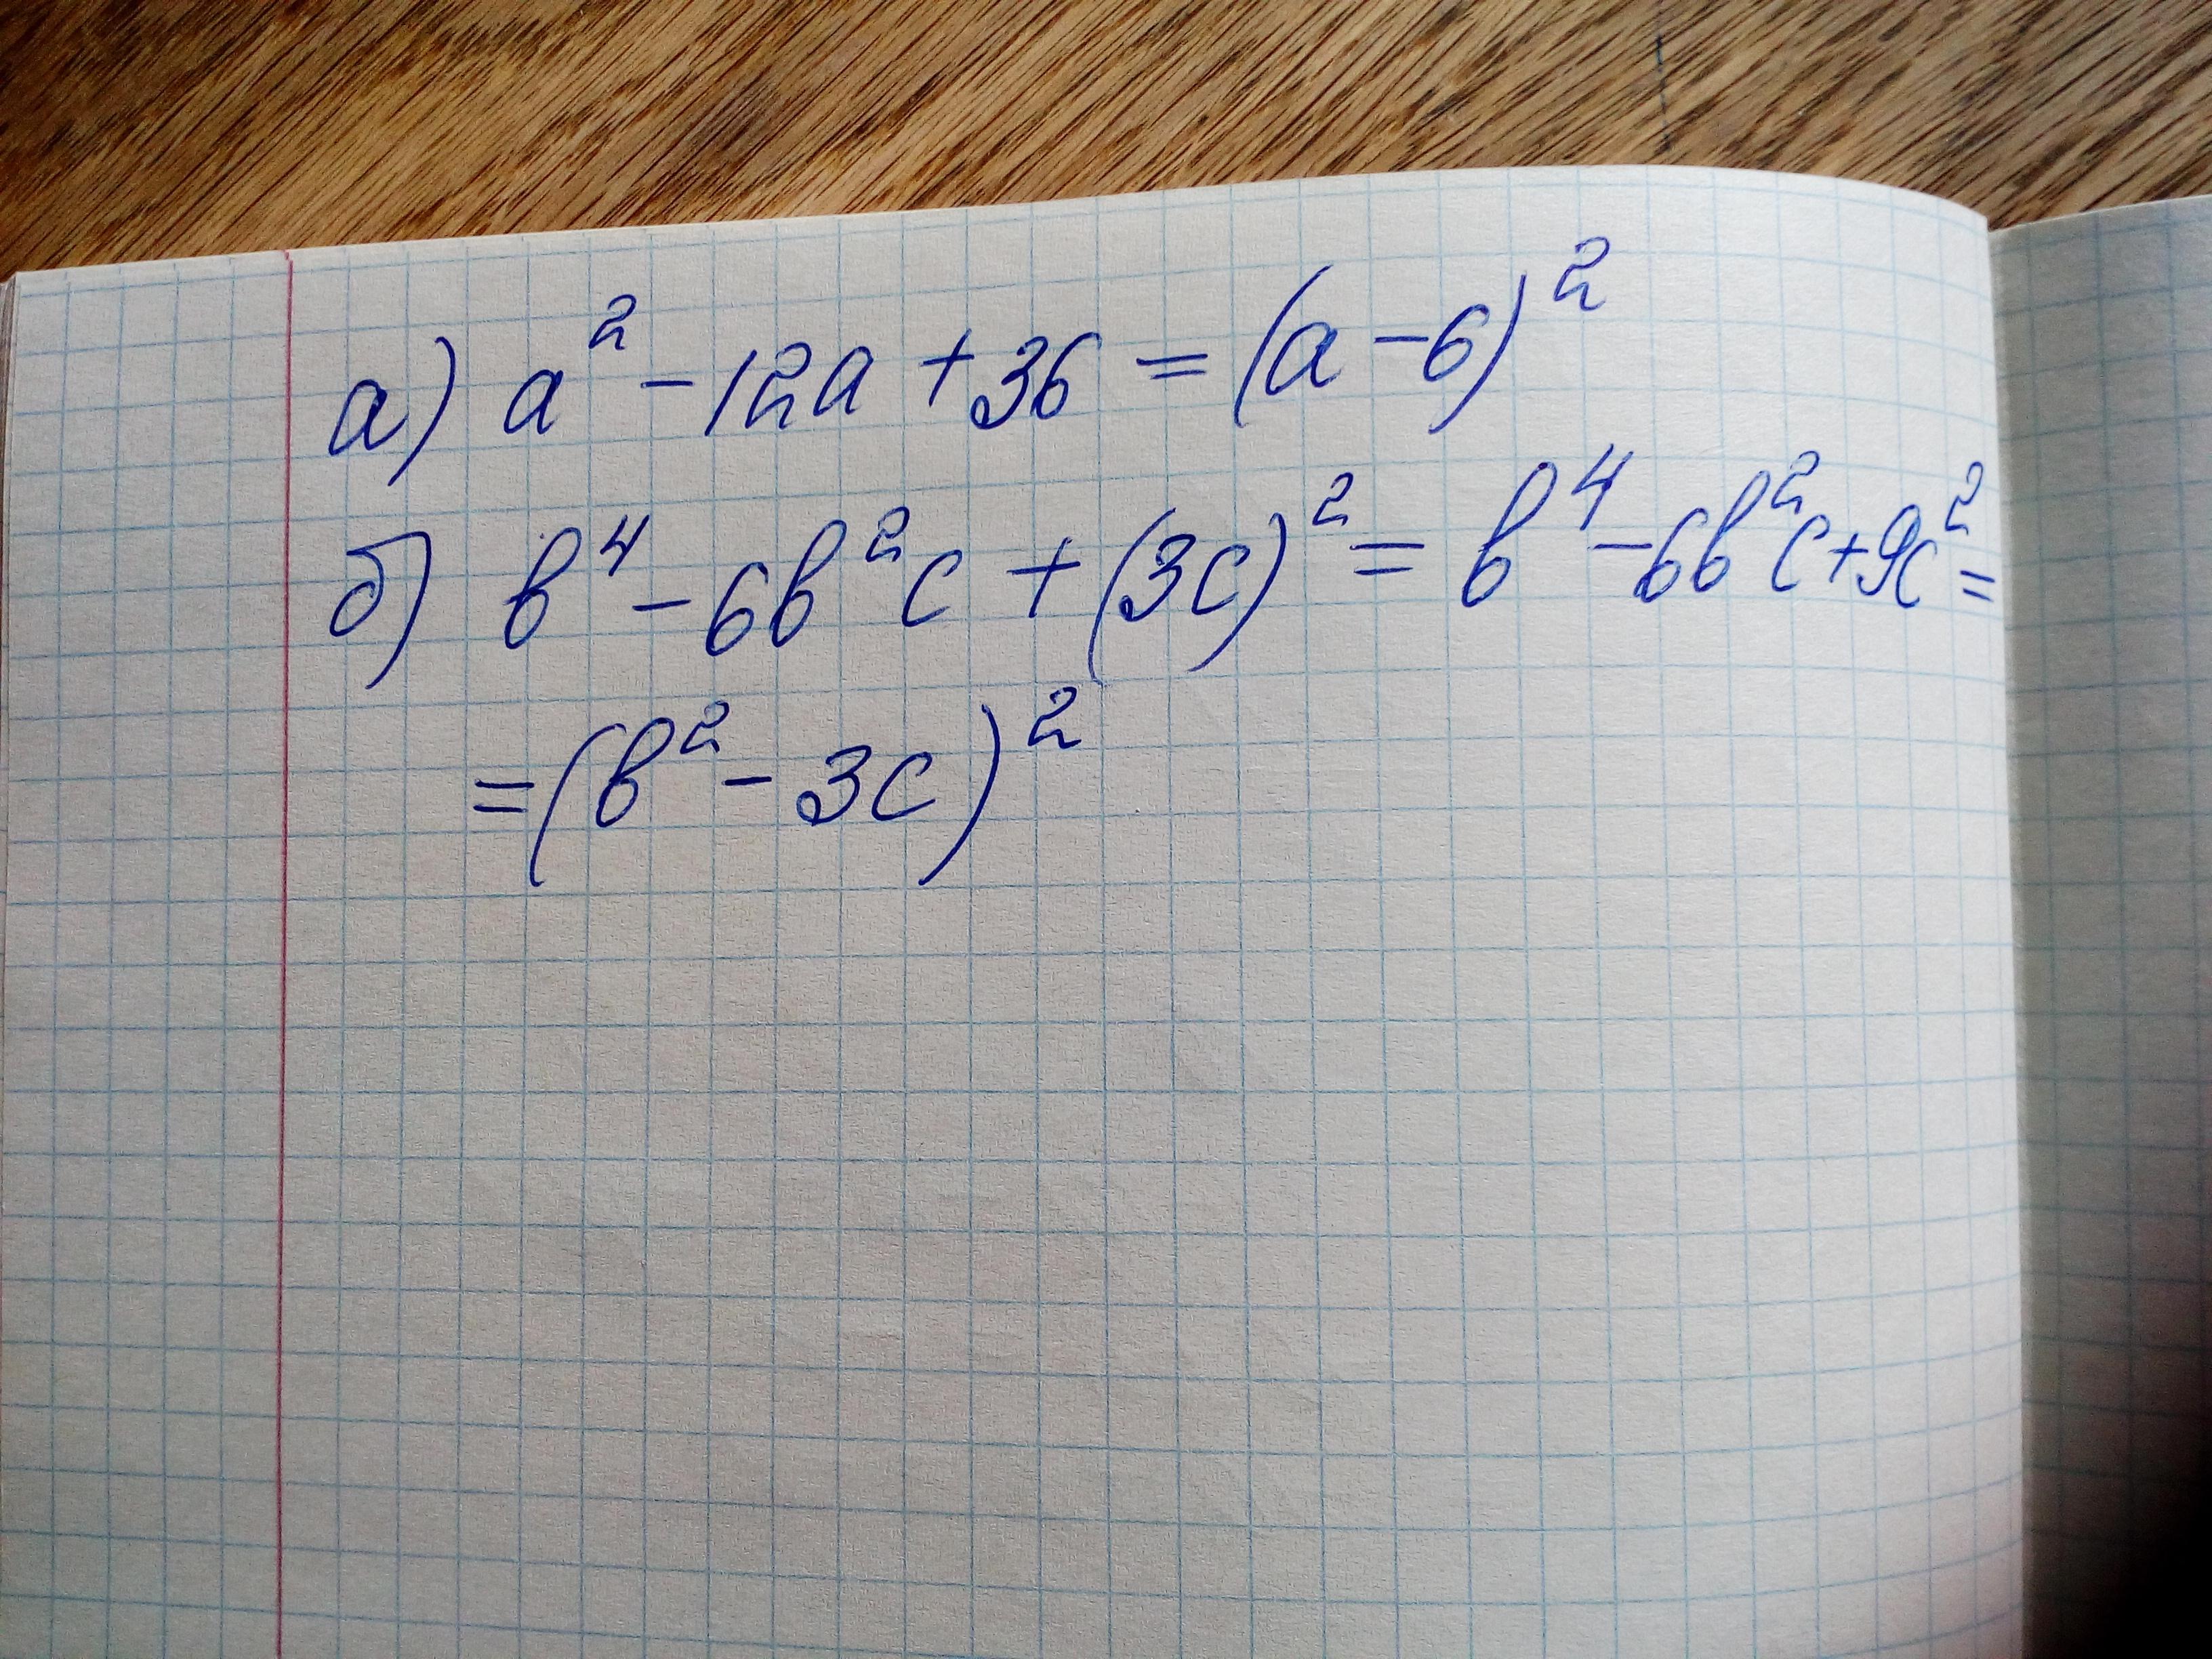 а) a² - 12a + 36 = (a - 6)²
б) b⁴ - 6b²c + (3c)² = b⁴ - 6b²c + 9c² =
= (b² - 3c)²